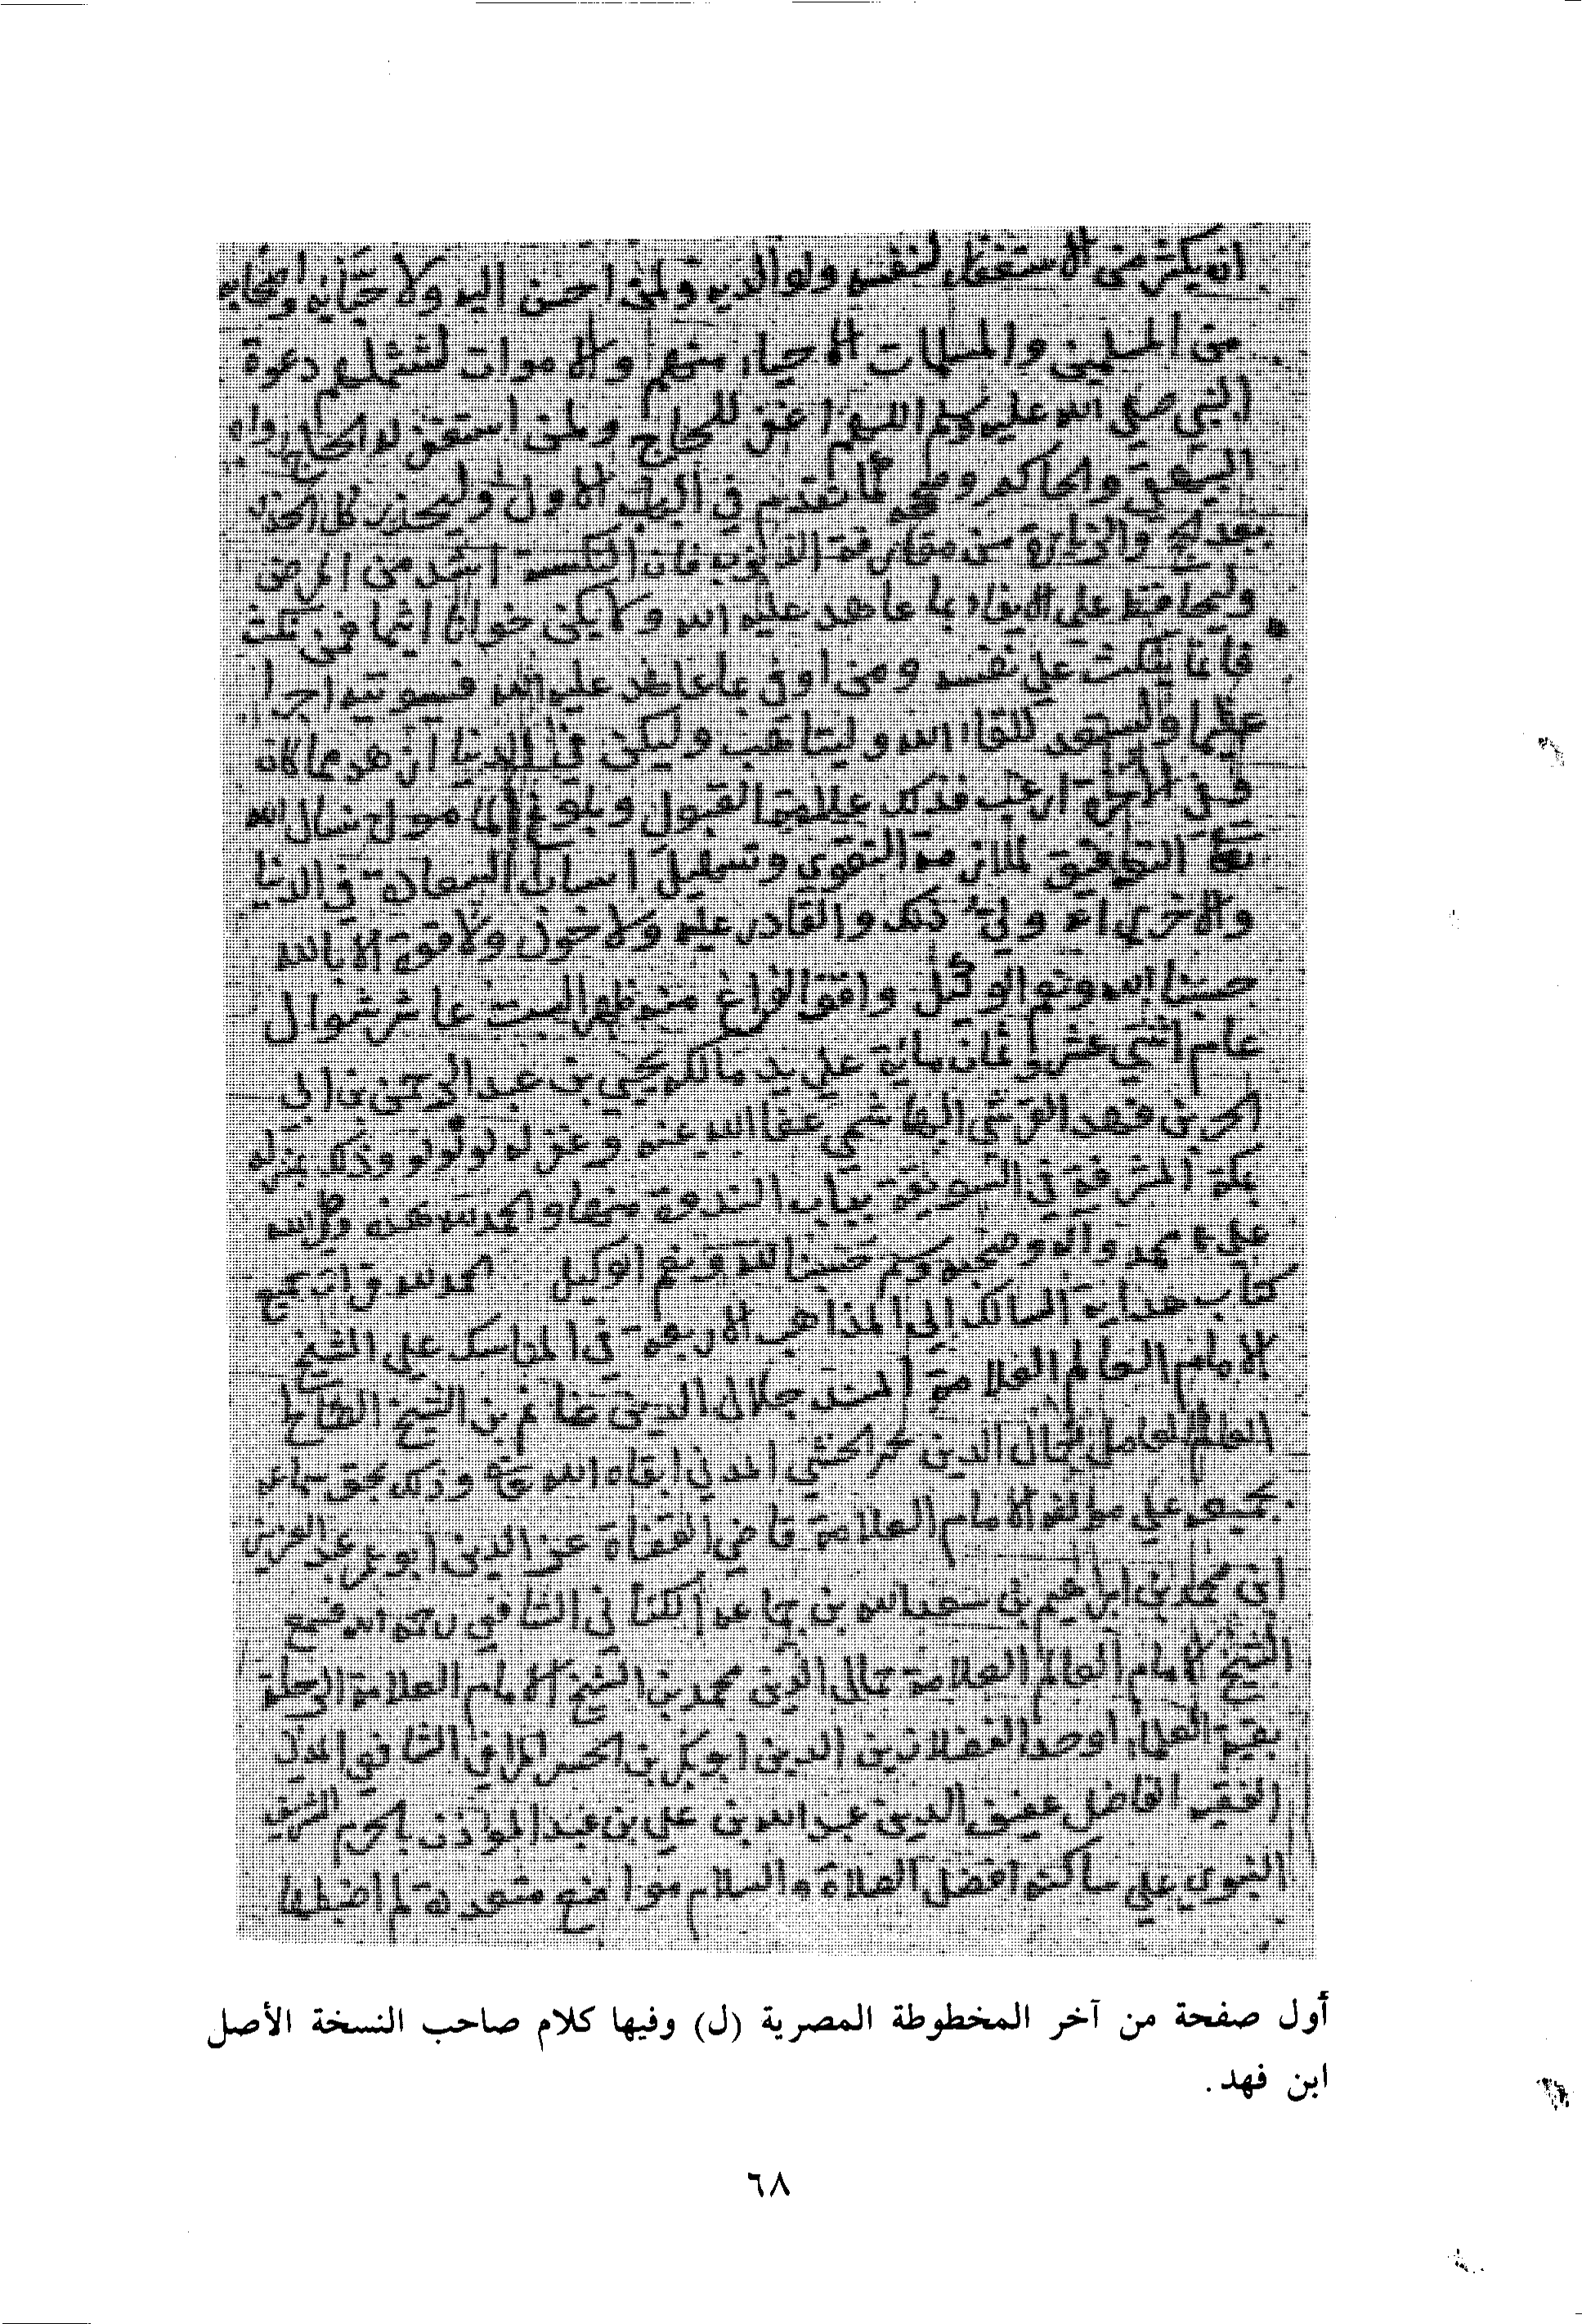 ان يكثر من الاستغفار لنفسه ولوالديه ولمن احسن اليه ولاحبابه واصحابه
من المسلمين والمسلمات الاحياء منهم والاموات لتشملهم دعوة
النبي صلى الله عليه وسلم اللهم اغفر للحاج ولمن استغفر له الحاج رواه
البيهقي والحاكم وصححه كما تقدم في الباب الاول وليحذر كل الحذر
بعد الحج والزيارة من مقارفة الذنوب فان النكسة اشد من المرض
وليحافظ علي الايفاء بما عاهد عليه الله ولا يكن خوانا اثيما فمن نكث
فانما ينكث علي نفسه ومن اوفى بما عاهد عليه الله فسيوتيه اجرا
عظيما وليستعد للقاء الله وليتاهب وليكن في الدنيا ازهد مما كان
وفي الاخرة ارغب فذلك علامة القبول وبلوغ المامول نسال الله
تعالى التوفيق لملازمة التقوي وتسهيل اسباب السعادة في الدنيا
والاخري انه ولي ذلك والقادر عليه ولا حول ولا قوة الا بالله
حسبنا الله ونعم الوكيل وافق الفراغ منه ظهر السبت عاشر شوال
عام اثني عشر وثمان ماية علي يد مالكه يحيي بن عبد الرحمن بن ابي
الخير بن فهد القرشي الهاشمي عفا الله عنه وغفر له ولوالديه وذلك بمنزله
بمكة المشرفة في السويقة بباب الندوة منها والحمد لله وحده وصلى الله
علي محمد واله وصحبه وسلم حسبنا الله ونعم الوكيل الحمد لله قرات جميع
كتاب هداية السالك الي المذاهب الاربعة في المناسك علي الشيخ
الامام العالم العلامة المسند جلال الدين غانم بن الشيخ
العالم العامل جمال الدين محمد الخشبي المدني ابقاه الله وذلك بحق سماعه
بجميعه علي مولفه الامام العلامة قاضي القضاة عز الدين ابو عمر عبد العزيز
ابن محمد بن ابراهيم بن سعد الله بن جماعه الكناني الشافعي رحمه الله فسمع
الشيخ الامام العالم العلامة جمال الدين محمد بن الشيخ الامام العلامة الرحلة
بقية العلماء اوحد الفضلا زين الدين ابو بكر بن الحسين المراغي الشافعي المدني
الفقيه الفاضل عفيف الدين عبد الله بن علي بن المؤذن بالحرم الشريف
النبوي علي ساكنه افضل الصلاة والسلام مواضع متعددة لم اضبطها
أول صفحة من آخر المخطوطة المصرية (ل) وفيها كلام صاحب النسخة الأصل
ابن فهد.
٦٨